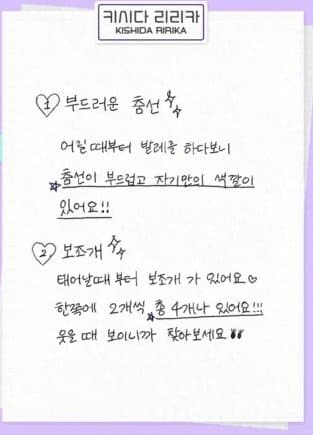 키시다 리리카
KISHIDA RIRIKA
1 부드러운 춤선
어릴때부터 발레를 하다보니
춤선이 부드럽고 자기만의 색깔이
있어요!!
2 보조개
태어날때부터 보조개가 있어요♡
한쪽에 2개씩 총 4개나 있어요!!!
웃을 때 보이니까 찾아보세요